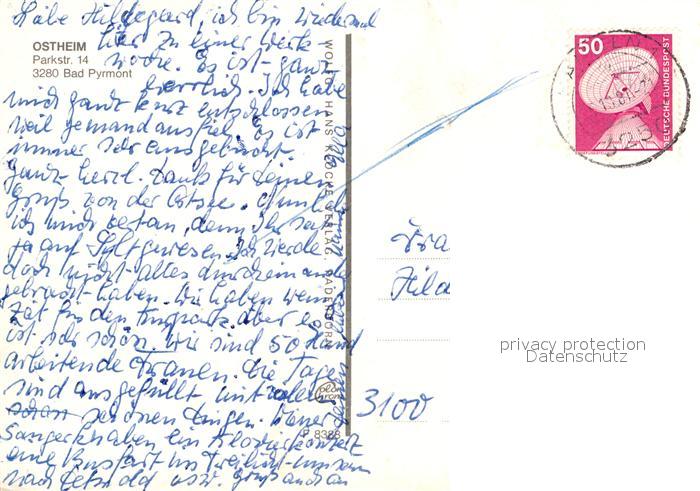 Liebe Hildegard, ich bin wiedermal
hier zu einer Werk-
woche. Es ist ganz
herrlich. Ich habe
mich ganz kurz entschlossen
weil jemand ausfiel. Es ist
immer sehr ausgebucht.
Ganz herzl. Dank für Deinen
Gruß von der Ostsee.
ich mich vertan, denn Ihr
ja auf Sylt gewesen. Ich werde
doch nicht alles durcheinander
gebracht haben. Wir haben wenig
Zeit für den Kurpark, aber es
ist sehr schön. Wir sind 50 Hand
arbeitende Frauen. Die Tage
sind ausgefüllt mit vielen
schönen Dingen.
ein Klavierkonzert
eine Busfahrt ins Freilicht-museum
nach Detmold usw. Gruß auch an
OSTHEIM
Parkstr. 14
3280 Bad Pyrmont
WOLFG. HANS KLOCKE VERLAG, PADERBORN
P 8388
50
DEUTSCHE BUNDESPOST
Fra
Hild
3100
privacy protection
Datenschutz